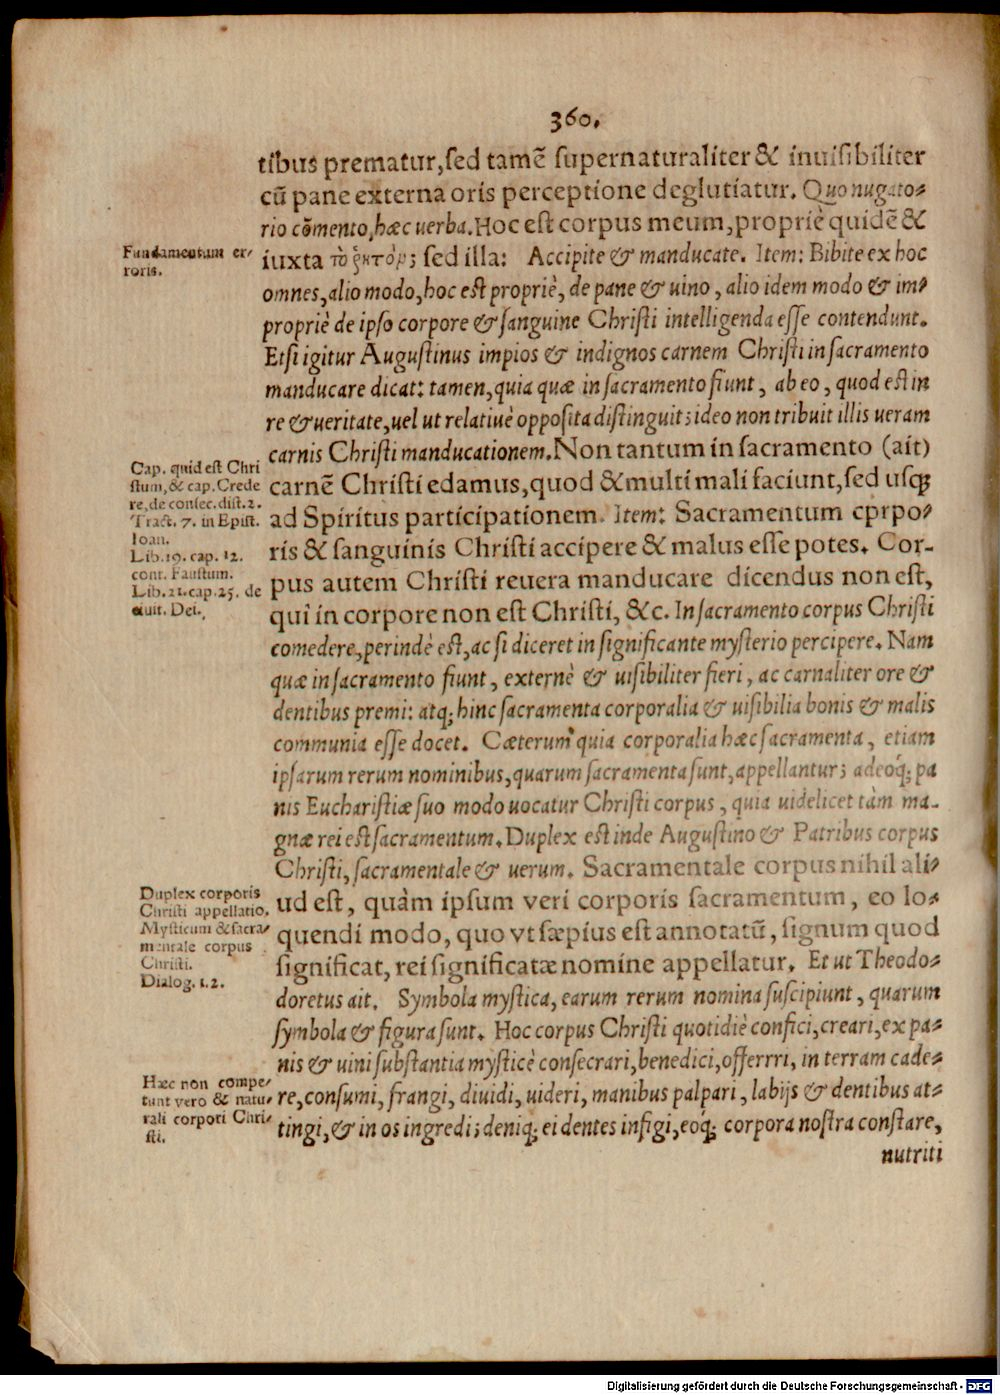 360.
tibus prematur, sed tamē supernaturaliter & inuisibiliter
cū pane externa oris perceptione deglutiatur. Quo nugato-
rio cōmento, hæc uerba. Hoc est corpus meum, propriè quidē &
Fundamentum er-
roris.
iuxta τὸ ῥητὸν; sed illa: Accipite & manducate. Item: Bibite ex hoc
omnes, alio modo, hoc est propriè, de pane & uino, alio idem modo & im-
propriè de ipso corpore & sanguine Christi intelligenda esse contendunt.
Etsi igitur Augustinus impios & indignos carnem Christi in sacramento
manducare dicat: tamen, quia quæ in sacramento fiunt, ab eo, quod est in
re & ueritate, uel ut relatiuè opposita distinguit; ideo non tribuit illis ueram
carnis Christi manducationem. Non tantum in sacramento (ait)
Cap. quid est Chri
stum, & cap. Crede
re, de consec. dist. 2.
Tract. 7. in Epist.
Ioan.
Lib. 19. cap. 12.
cont. Faustum.
Lib. 21. cap. 25. de
ciuit. Dei.
carnē Christi edamus, quod & multi mali faciunt, sed usq;
ad Spiritus participationem. Item: Sacramentum cprpo-
ris & sanguinis Christi accipere & malus esse potes. Cor-
pus autem Christi reuera manducare dicendus non est,
qui in corpore non est Christi, &c. In sacramento corpus Christi
comedere, perindè est, ac si diceret in significante mysterio percipere. Nam
quæ in sacramento fiunt, externè & uisibiliter fieri, ac carnaliter ore &
dentibus premi: atq; hinc sacramenta corporalia & uisibilia bonis & malis
communia esse docet. Cæterum quia corporalia hæc sacramenta, etiam
ipsarum rerum nominibus, quarum sacramenta sunt, appellantur; adeoq́; pa
nis Eucharistiæ suo modo uocatur Christi corpus, quia uidelicet tàm ma-
gnæ rei est sacramentum. Duplex est inde Augustino & Patribus corpus
Christi, sacramentale & uerum. Sacramentale corpus nihil ali-
Duplex corporis
Christi appellatio.
Mysticum & sacra-
mentale corpus
Christi.
Dialog. 1. 2.
ud est, quàm ipsum veri corporis sacramentum, eo lo-
quendi modo, quo vt sæpius est annotatū, signum quod
significat, rei significatæ nomine appellatur. Et ut Theodo-
doretus ait. Symbola mystica, earum rerum nomina suscipiunt, quarum
symbola & figura sunt. Hoc corpus Christi quotidiè confici, creari, ex pa-
nis & uini substantia mysticè consecrari, benedici, offerrri, in terram cade-
Hæc non compe-
tunt vero & natu-
rali corpori Chri-
sti.
re, consumi, frangi, diuidi, uideri, manibus palpari, labijs & dentibus at-
tingi, & in os ingredi; deniq; ei dentes infigi, eoq́; corpora nostra constare,
nutriti
Digitalisierung gefördert durch die Deutsche Forschungsgemeinschaft - DFG